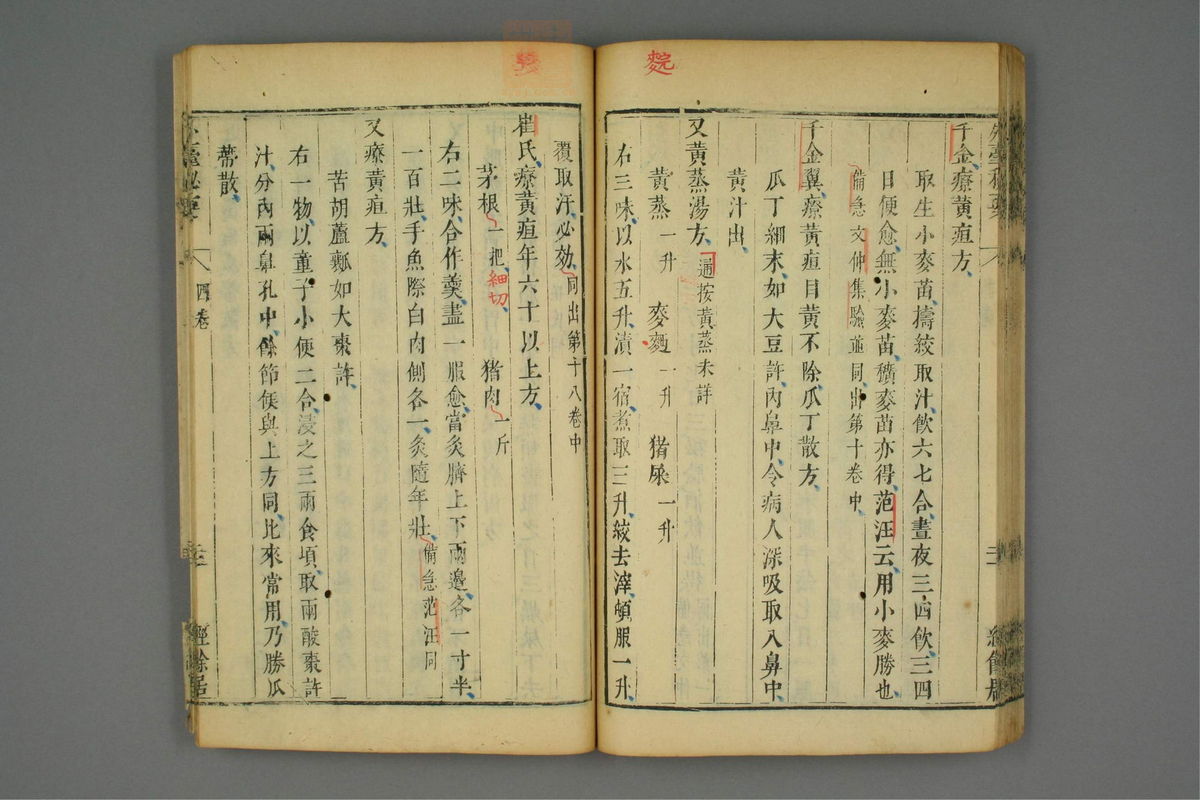 麧
千金療黃疸方
取生小麥苗擣絞取汁飲六七合晝夜三四飲三四
日便愈無小麥苗穬麥苗亦得范汪云用小麥勝也
備急文仲集驗並同出第十卷中
千金翼療黃疸目黃不除瓜丁散方
瓜丁細末如大豆許內鼻中令病人深吸取入鼻中
黃汁出
又黃蒸湯方通按黃蒸未詳
黃蒸一升 麥麪一升 猪屎一升
右三味以水五升漬一宿煮取三升絞去滓頓服一升
覆取汗必効同出第十八卷中
崔氏療黃疸年六十以上方
茅根一把細切 猪肉一斤
右二味合作羹盡一服愈當灸臍上下兩邊各一寸半
一百壯手魚際白肉側各一灸隨年壯備急范汪同
又療黃疸方
苦胡蘆瓤如大棗許
右一物以童子小便二合浸之三兩食頃取兩酸棗許
汁分內兩鼻孔中餘節候與上方同比來常用乃勝瓜
蒂散
外臺祕要 四卷 經餘居